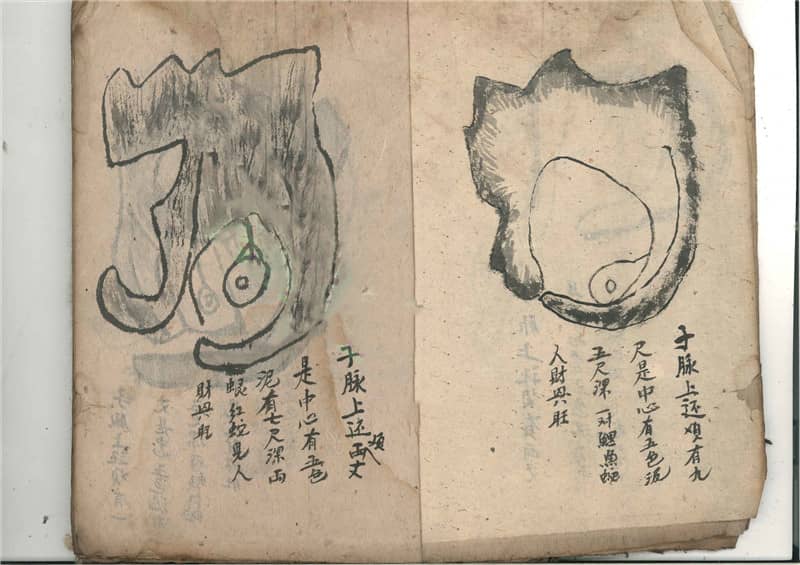 子脉上还须有九
尺是中心有五色泥
五尺深一对鯉魚
人財兴旺
子脉上还須两丈
是中心有五色
泥有七尺深两
红蛇見人
財兴旺